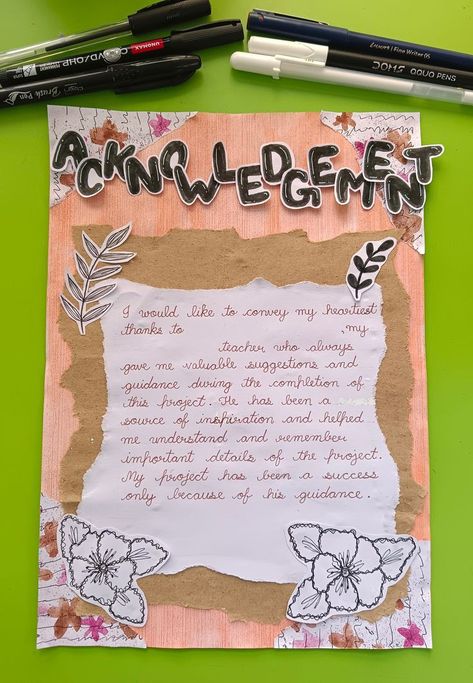 UNOMAX
Brush Pen
Luxor | Fine Writer 05
DOMS AQUA PENS
ACKNOWLEDGEMENT
I would like to convey my heartiest
thanks to ,my
teacher who always
gave me valuable suggestions and
guidance during the completion of
this project. He has been a
source of inspiration and helped
me understand and remember
important details of the project.
My project has been a success
only because of his guidance.